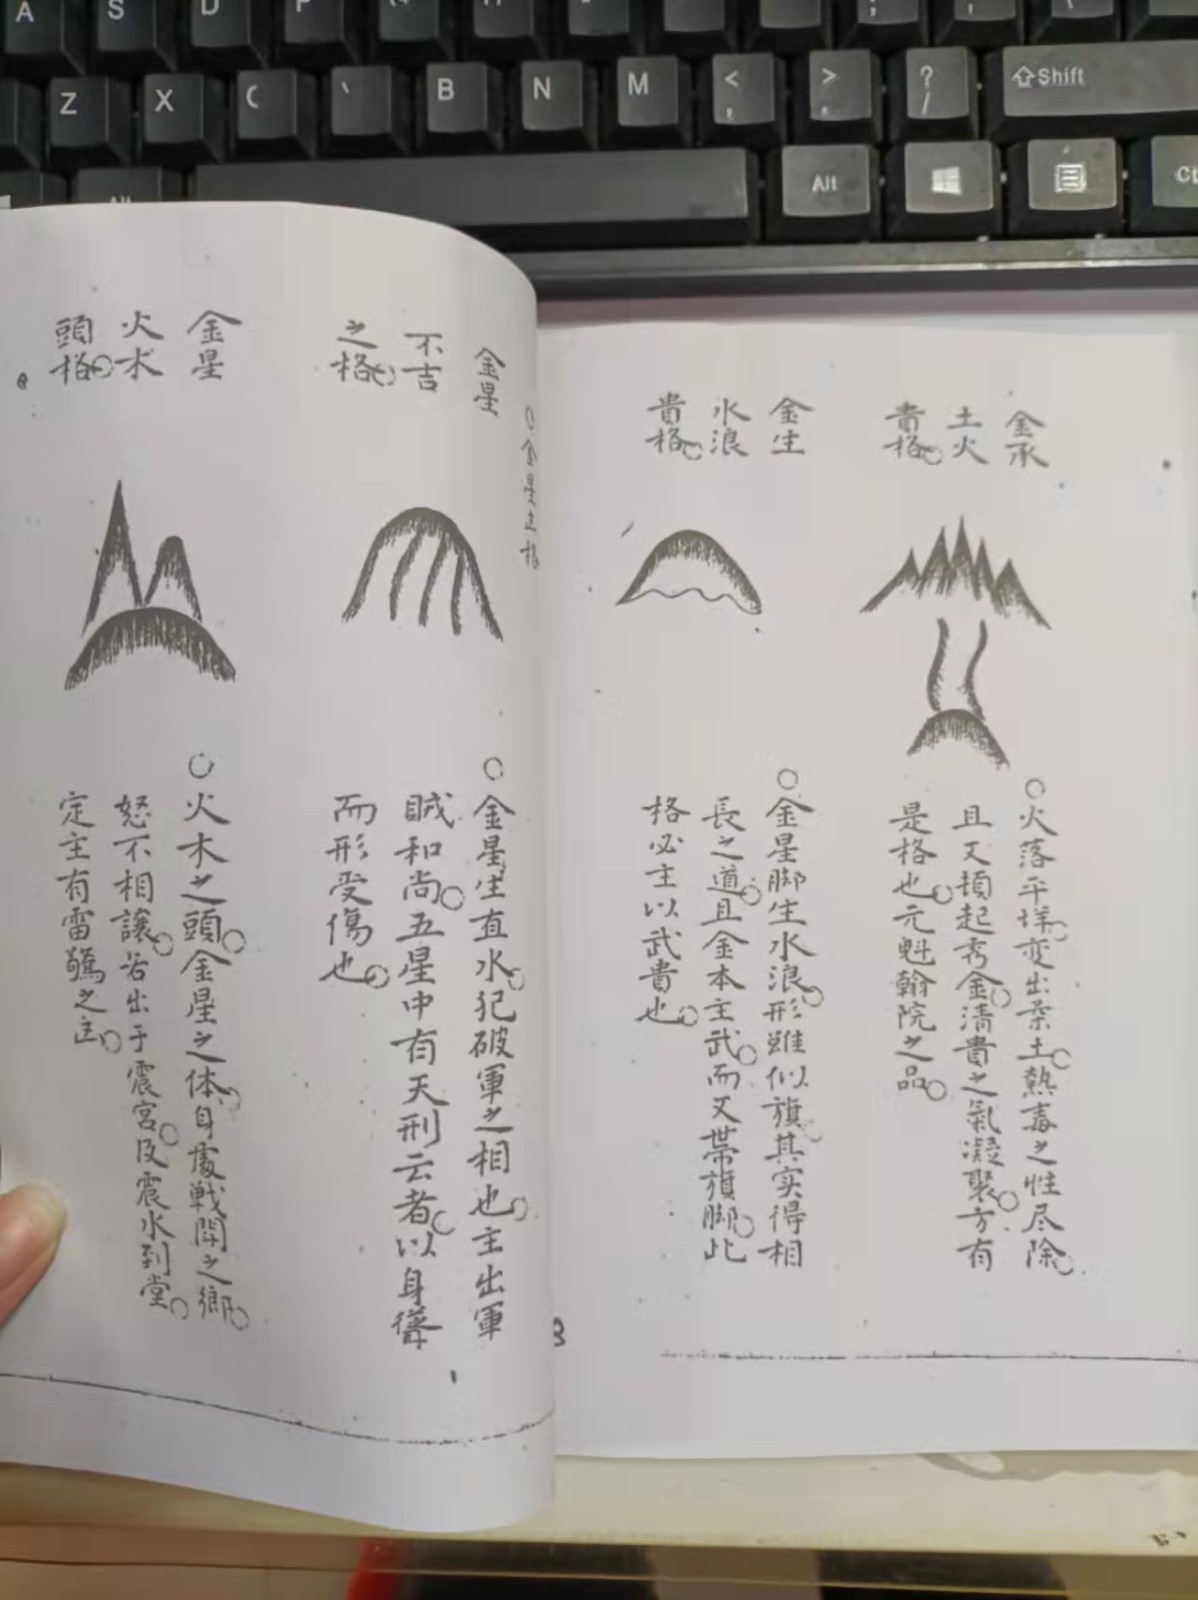 A
S
D
F
Z
X
C
B
N
M
<
,
>
.
?
/
Shift
Alt
金承
土火
貴格
火落平洋変出柔土熱毒之性尽除
且又頓起秀金清貴之氣凝聚方有
是格也元魁翰院之品
金生
水浪
貴格
金星脚生水浪形雖似旗其实得相
長之道且金本主武而又帯旗脚此
格必主以武貴也
8
金星
金星
不吉
之格
金星生直水犯破軍之相也主出軍
賊和尚五星中有天刑云者以身
而形受傷也
金星
火木
頭格
火木之頭金星之体身處戰鬥之鄉
怒不相讓若出于震宮及震水到堂
定主有雷驚之